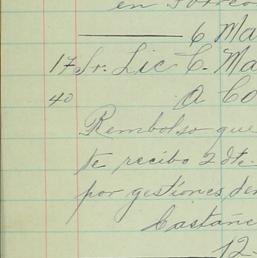 en Torreo
6 Ma
17 Sr. Lic C. Ma
40 a Co
Rembolso que
te recibo 2 dte.
por gestiones den
Castañe
12-